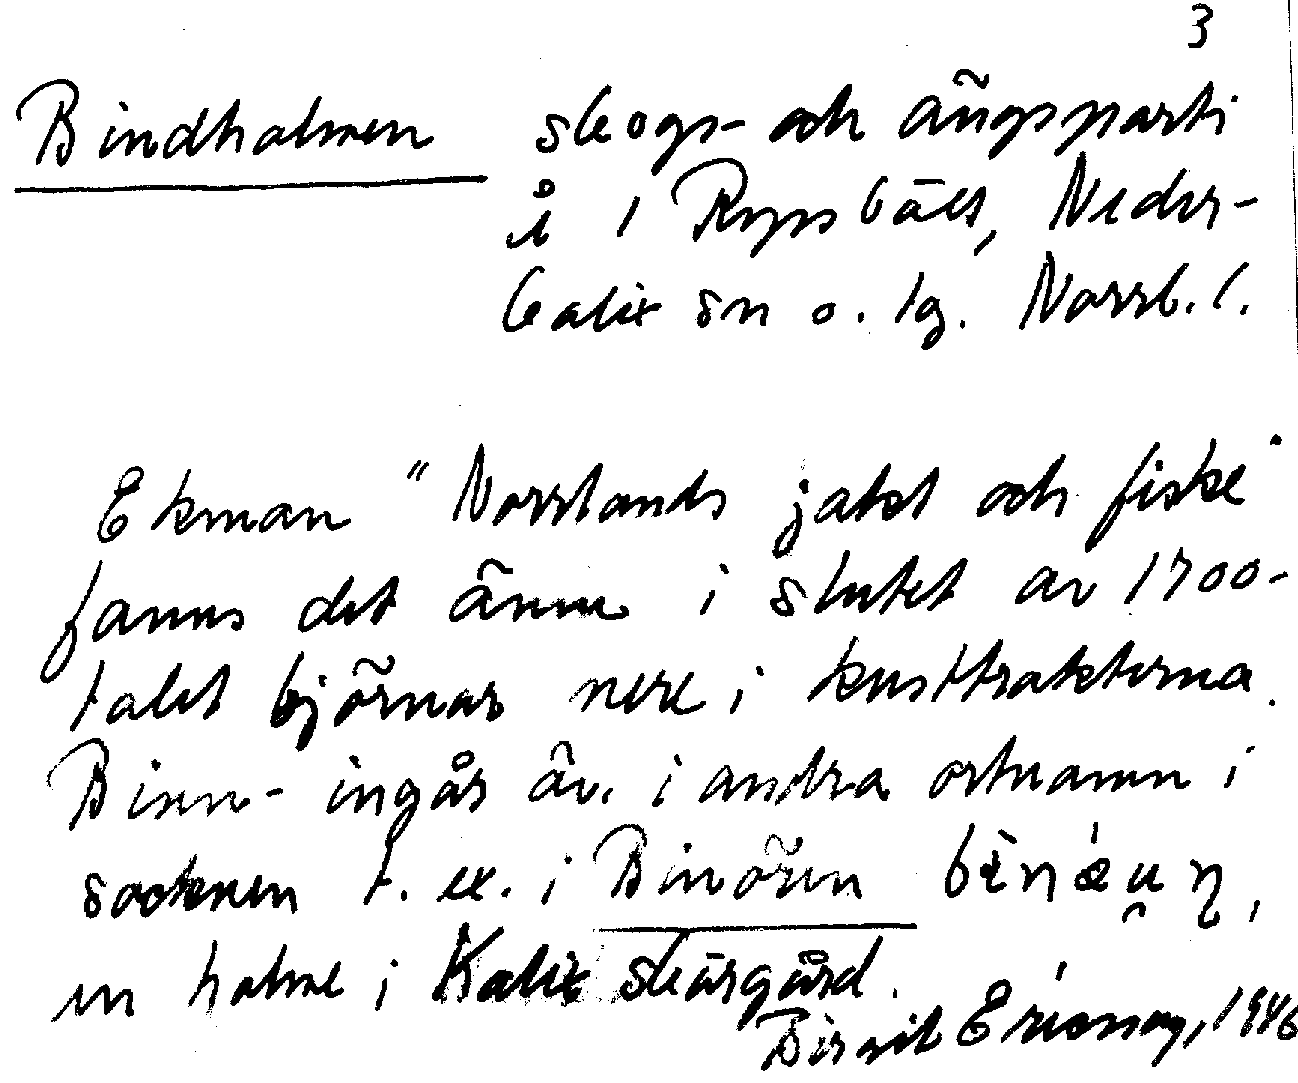 3
Bindholmen skogs- och ängsparti
å i Rygsbält, Neder-
kalix sn o. tg. Norrb. l.
Ekman "Norrlands jakt och fiske"
fanns det ännu i slutet av 1700-
talet björnar nere i kusttrakterna.
Binn- ingår äv. i andra ortnamn i
socknen t. ex. i Binören
en holme i Kalix skärgård.
Birgit Ericson, 1946